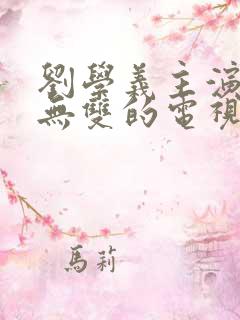 劉學義主演
無雙的電視
馬莉